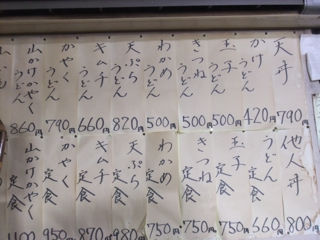 天丼 790円
かけうどん 420円
玉子うどん 500円
きつねうどん 500円
わかめうどん 500円
天ぷらうどん 820円
キムチうどん 660円
かやくうどん 790円
山かけかやくうどん 860円
他人丼 800円
うどん定食 660円
玉子定食 750円
きつね定食 750円
わかめ定食 750円
天ぷら定食 980円
キムチ定食 870円
かやく定食 950円
山かけかやく定食